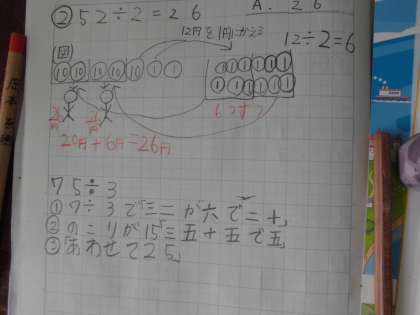 A. 26
② 52÷2=26
12円を1円にかえる
12÷2=6
(図)
10 10 10 10 10 1 1
1 1 1 1 1 1
1 1 1 1 1 1
6つず
26円 26円
20円+6円=26円
75÷3
①7÷3で「三二が六で二十」
②のこりが15「三五十五で五」
③「あわせて25」